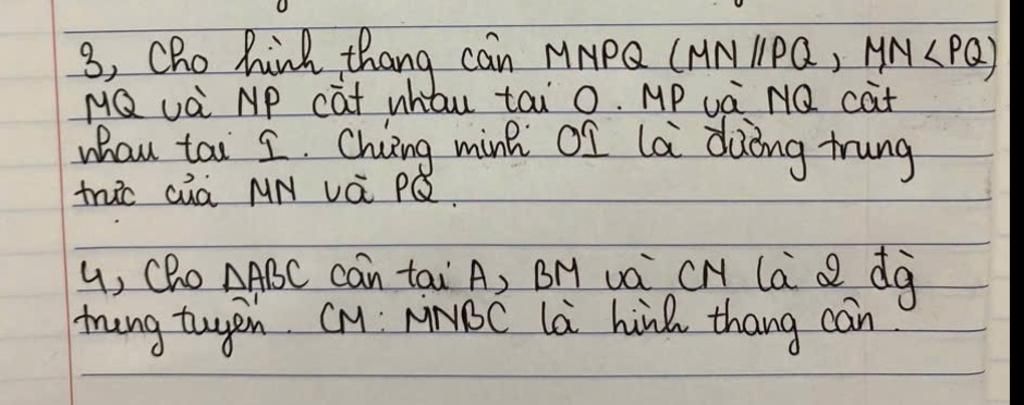 3, Cho hình thang cân MNPQ (MN//PQ, MN<PQ)
MQ và NP cắt nhau tại O. MP và NQ cắt
nhau tại I. Chứng minh OI là đường trung
trực của MN và PQ.
4, Cho ΔABC cân tại A, BM và CN là 2 đg
trung tuyến. CM: MNBC là hình thang cân.